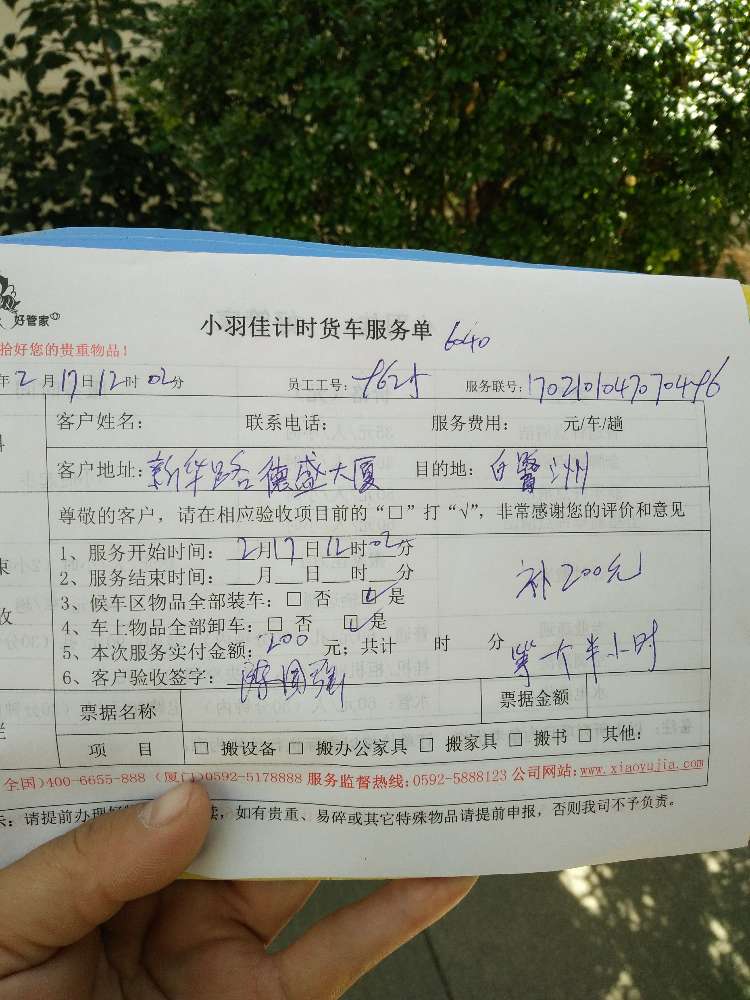 好管家
小羽佳计时货车服务单 6040
拾好您的贵重物品!
年2月17日12时02分 员工工号: 服务联号:
客户姓名: 联系电话: 服务费用: 元/车/趟
客户地址:新华路德盛大厦 目的地:白鹭洲
尊敬的客户，请在相应验收项目前的“□”打“√”，非常感谢您的评价和意见
1、服务开始时间: 2月17日12时02分
2、服务结束时间: 月 日 时 分
3、候车区物品全部装车: □ 否 ☑ 是
4、车上物品全部卸车: □ 否 ☑ 是
5、本次服务实付金额: 200 元; 共计 时 分
6、客户验收签字:
补200元
半小时
票据名称 票据金额
项 目 □ 搬设备 □ 搬办公家具 □ 搬家具 □ 搬书 □ 其他:
全国)400-6655-888 (厦门)0592-5178888 服务监督热线:0592-5888123 公司网站:www.xiaoyujia.com
示: 请提前办理好 续，如有贵重、易碎或其它特殊物品请提前申报，否则我司不予负责。